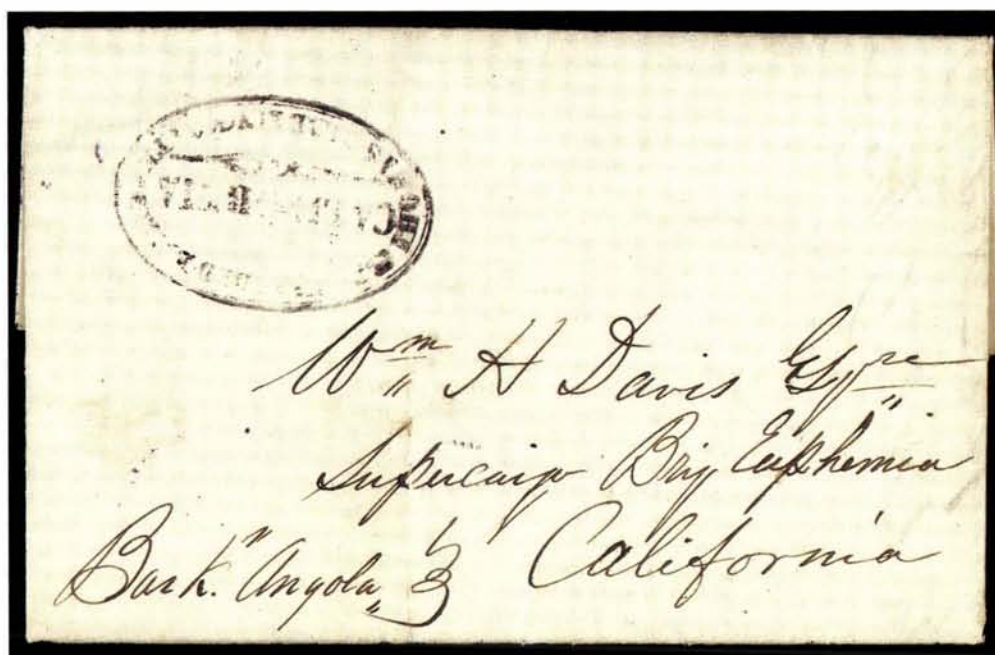 CALIFORNIA
Wm H Davis Esqre
Supercargo Brig Euphemia
California
Bark "Angola"